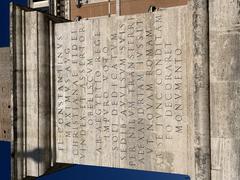 FL CONSTANTINVS
MAXIMVS AVG
CHRISTIANAE FIDEI
VINDEX ET ASSERTOR
OBELISCVM
AB AEGYPTIO REGE
IMPVRO VOTO
SOLI DEDICATVM
SEDIB AVVLSVM SVIS
PER NILVM TRANSFERRI
ALEXANDRIAM IVSSIT
VT NOVAM ROMAM
AB SE TVNC CONDITAM
EO DECORARET
MONVMENTO